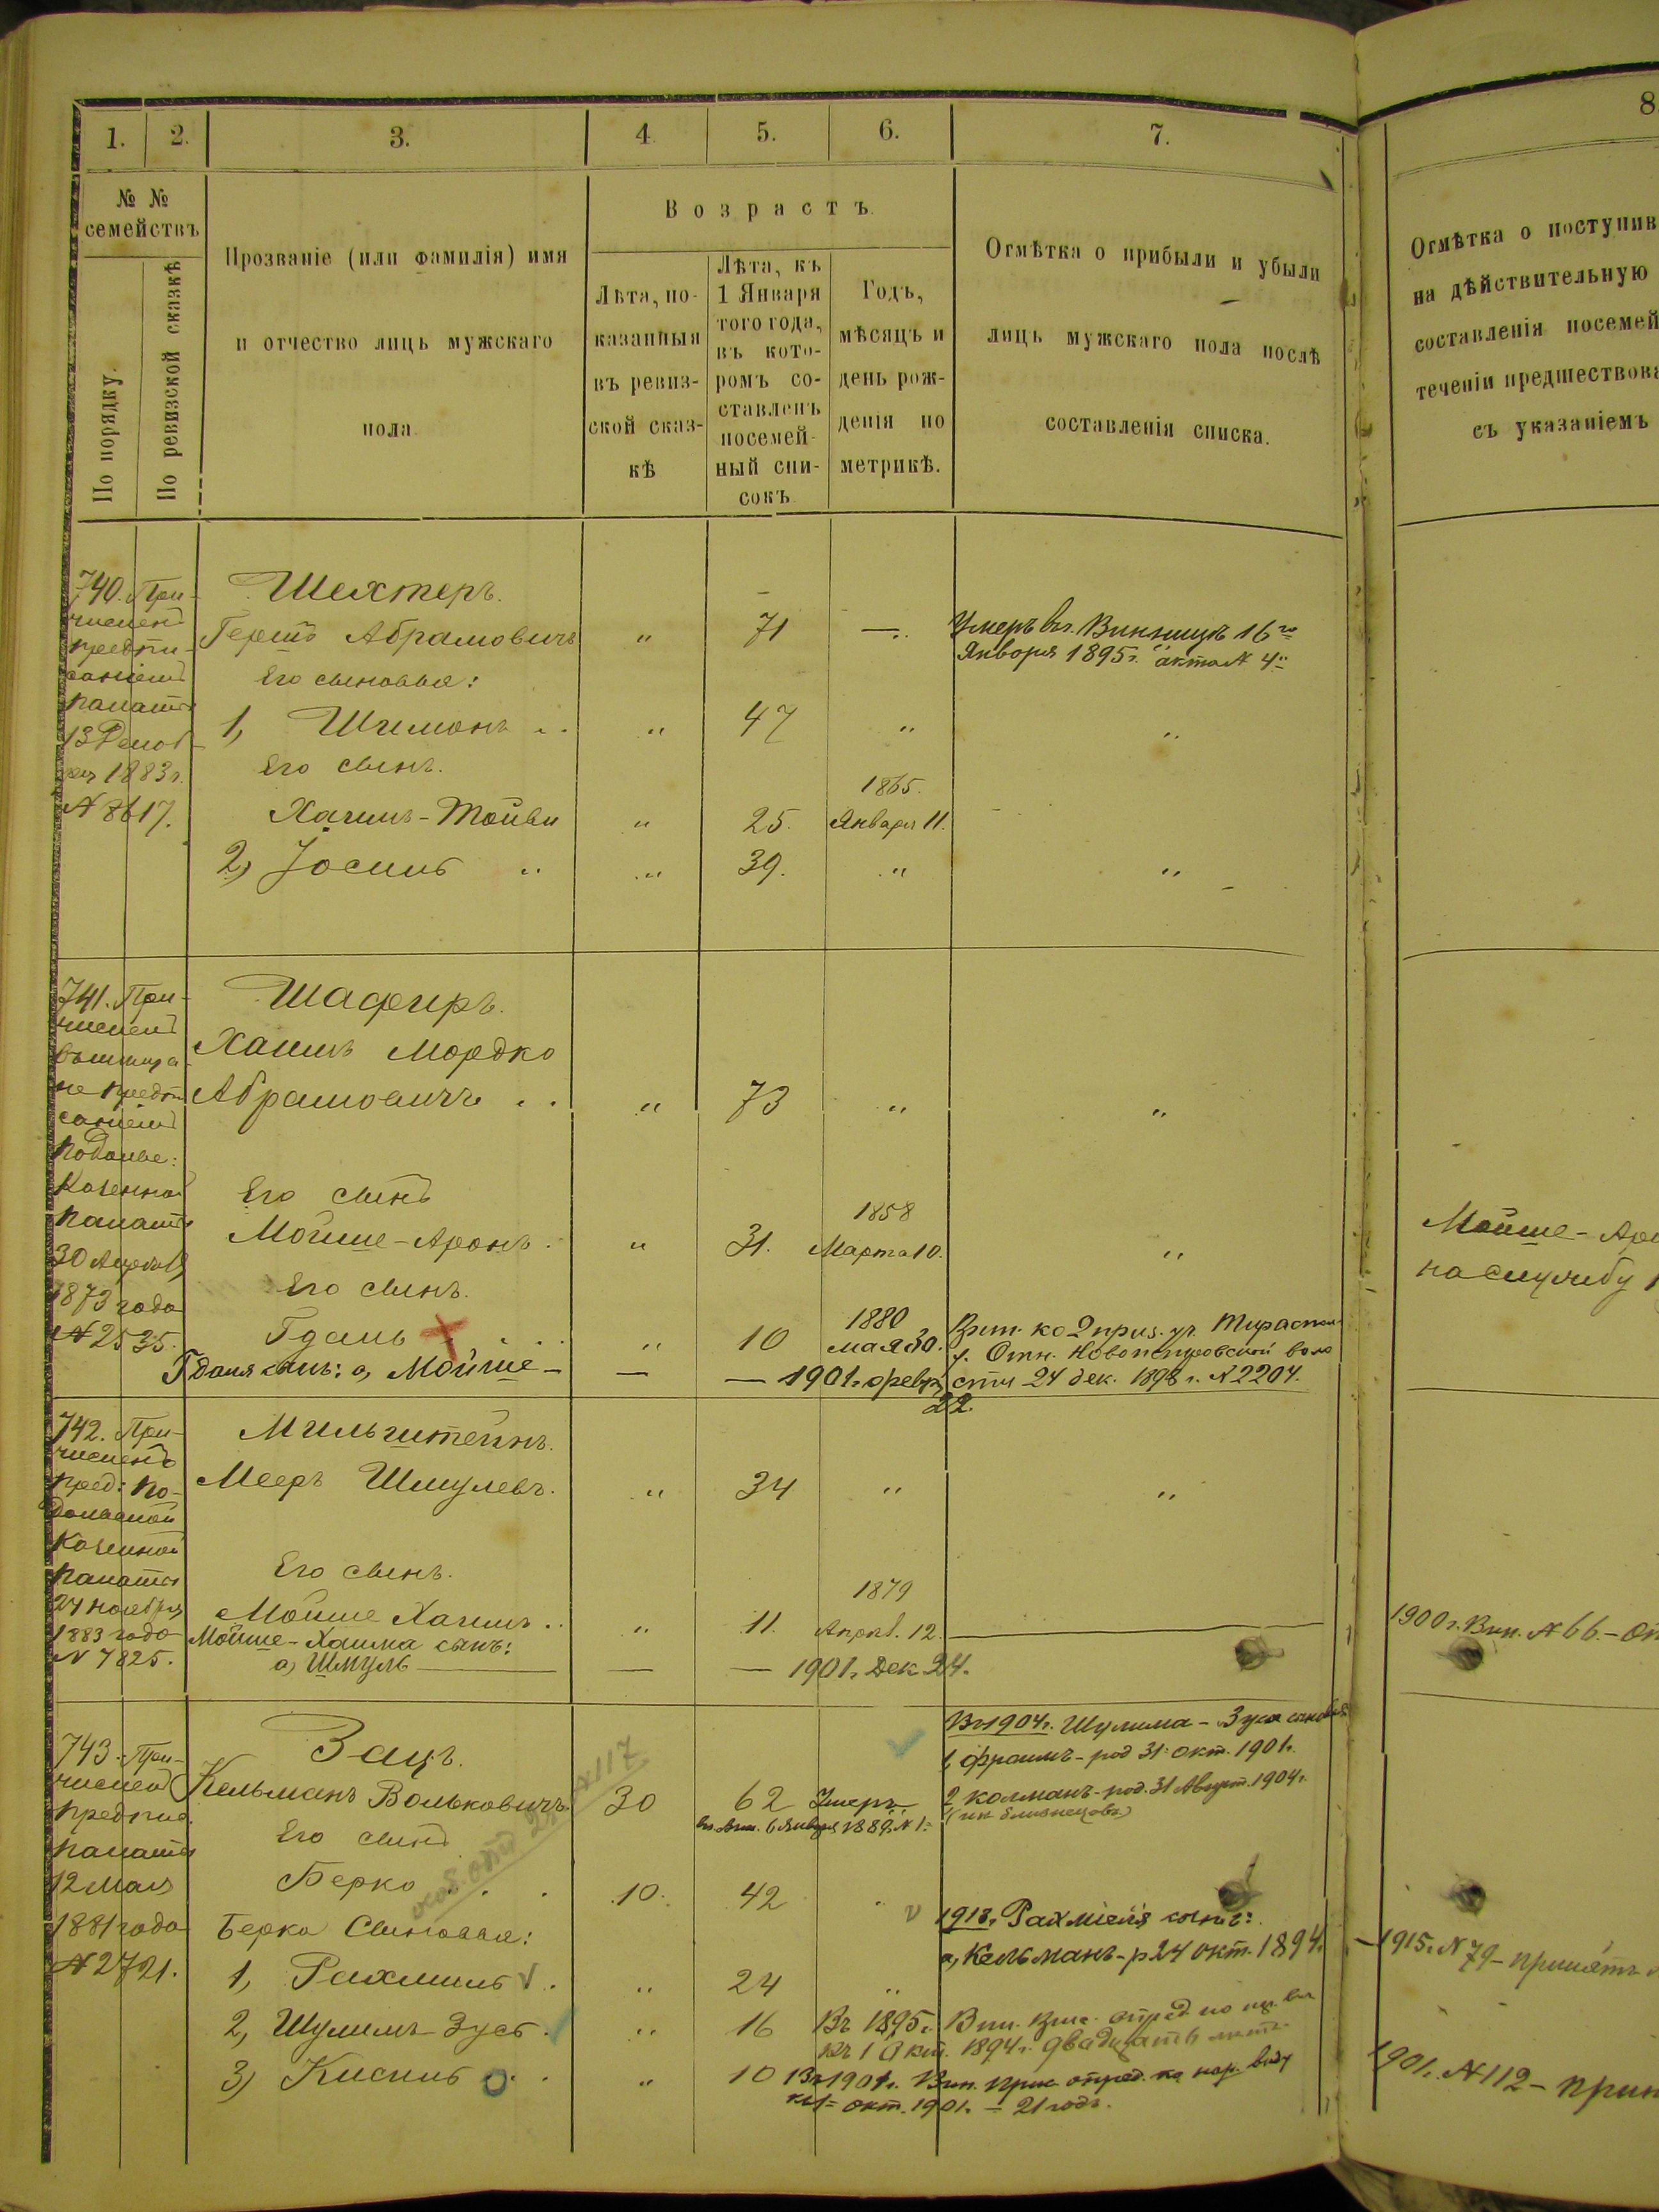 1. 2. 3. 4 5. 6. 7. 8
№ №
семействъ
По порядку.
По ревизской сказкѣ
Прозваніе (или фамилія) имя
и отчество лицъ мужскаго
пола.
Возрастъ.
Лѣта, по-
казанныя
въ ревиз-
ской сказ-
кѣ
Лѣта, къ
1 Января
того года,
въ кото-
ромъ со-
ставленъ
посемей-
ный спи-
сокъ
Годъ,
мѣсяцъ и
день рож-
денія по
метрикѣ.
Отмѣтка о прибыли и убыли
лицъ мужскаго пола послѣ
составленія списка.
Отмѣтка о поступив
на дѣйствительную
составленія посемей
теченіи предшествова
съ указаніемъ
740. При-
численъ
предпи-
саніемъ
палаты
13 Декаб-
ря 1883 г.
№ 8617.
Шехтеръ.
Гершъ Абрамовичъ " 71 —
Умеръ въ г. Винницѣ 16го
Января 1895 г. акта № 4
Его сыновья:
1, Шимонъ " 47 " "
Его сынъ.
Хаимъ-Тойви " 25. 1865. Января 11.
2) Іосипъ " 39. " "
741. При-
численъ
предпи
саніемъ
Подоль:
Казенной
палаты
30 Апрѣля
1873 года
№ 2535.
Шафиръ.
Хаимъ Мордко
Абрамовичъ " 73 " "
Его сынъ
Мойше-Аронъ. " 31. 1858 Марта 10. "
Его сынъ.
Гдаль " 10 1880 мая 30.
Гдаля сынъ: а, Мойше — — — 1901 г. февр. 22.
ко 2 приз. уч. Тираспол.
у. Отн. Новопетровской воло
сти 24 дек. 1898 г. № 2204.
Мойше-Аро
на службу
742. При-
численъ
пред: По-
дольской
Казенной
палаты
24 ноября
1883 года
№ 7825.
Мильштейнъ.
Мееръ Шмулевъ. " 34 " "
Его сынъ.
Мойше Хаимъ " 11. 1879 Апрѣл. 12.
Мойше-Хаима сынъ:
а) Шмуль — — — 1901 г. Дек. 24.
1900 г. Вин. № 66. —
743. При-
численъ
предпис.
палаты
12 Мая
1881 года
№ 2721.
Зацъ.
Кельманъ Вольковичъ. 30 62 Умеръ
6 Января 1889 г. № 1
Его сынъ
Берко 10. 42 "
Берка Сыновья:
1, Рахмиль " 24 "
2, Шулимъ-Зусь " 16
3) Кисиль " 10
Въ 1904 г. Шулима-Зуся сыновья
1, Фроимъ-род 31 окт. 1901 г.
2 Колманъ-род. 31 Август. 1904 г.
(изъ близнецовъ)
1913 г. Рахміеля сынъ:
а, Кельманъ-р 24 окт. 1894 г.
Въ 1895 г. Вин. опред по
къ 1 Окт. 1894 г. двадцать
Въ 1901 г. Вин. прис. опред. по нар. виду
къ 1 окт. 1901 г. — 21 годъ.
— 1915 г. № 79 - принятъ
1901 г. № 112 — прин